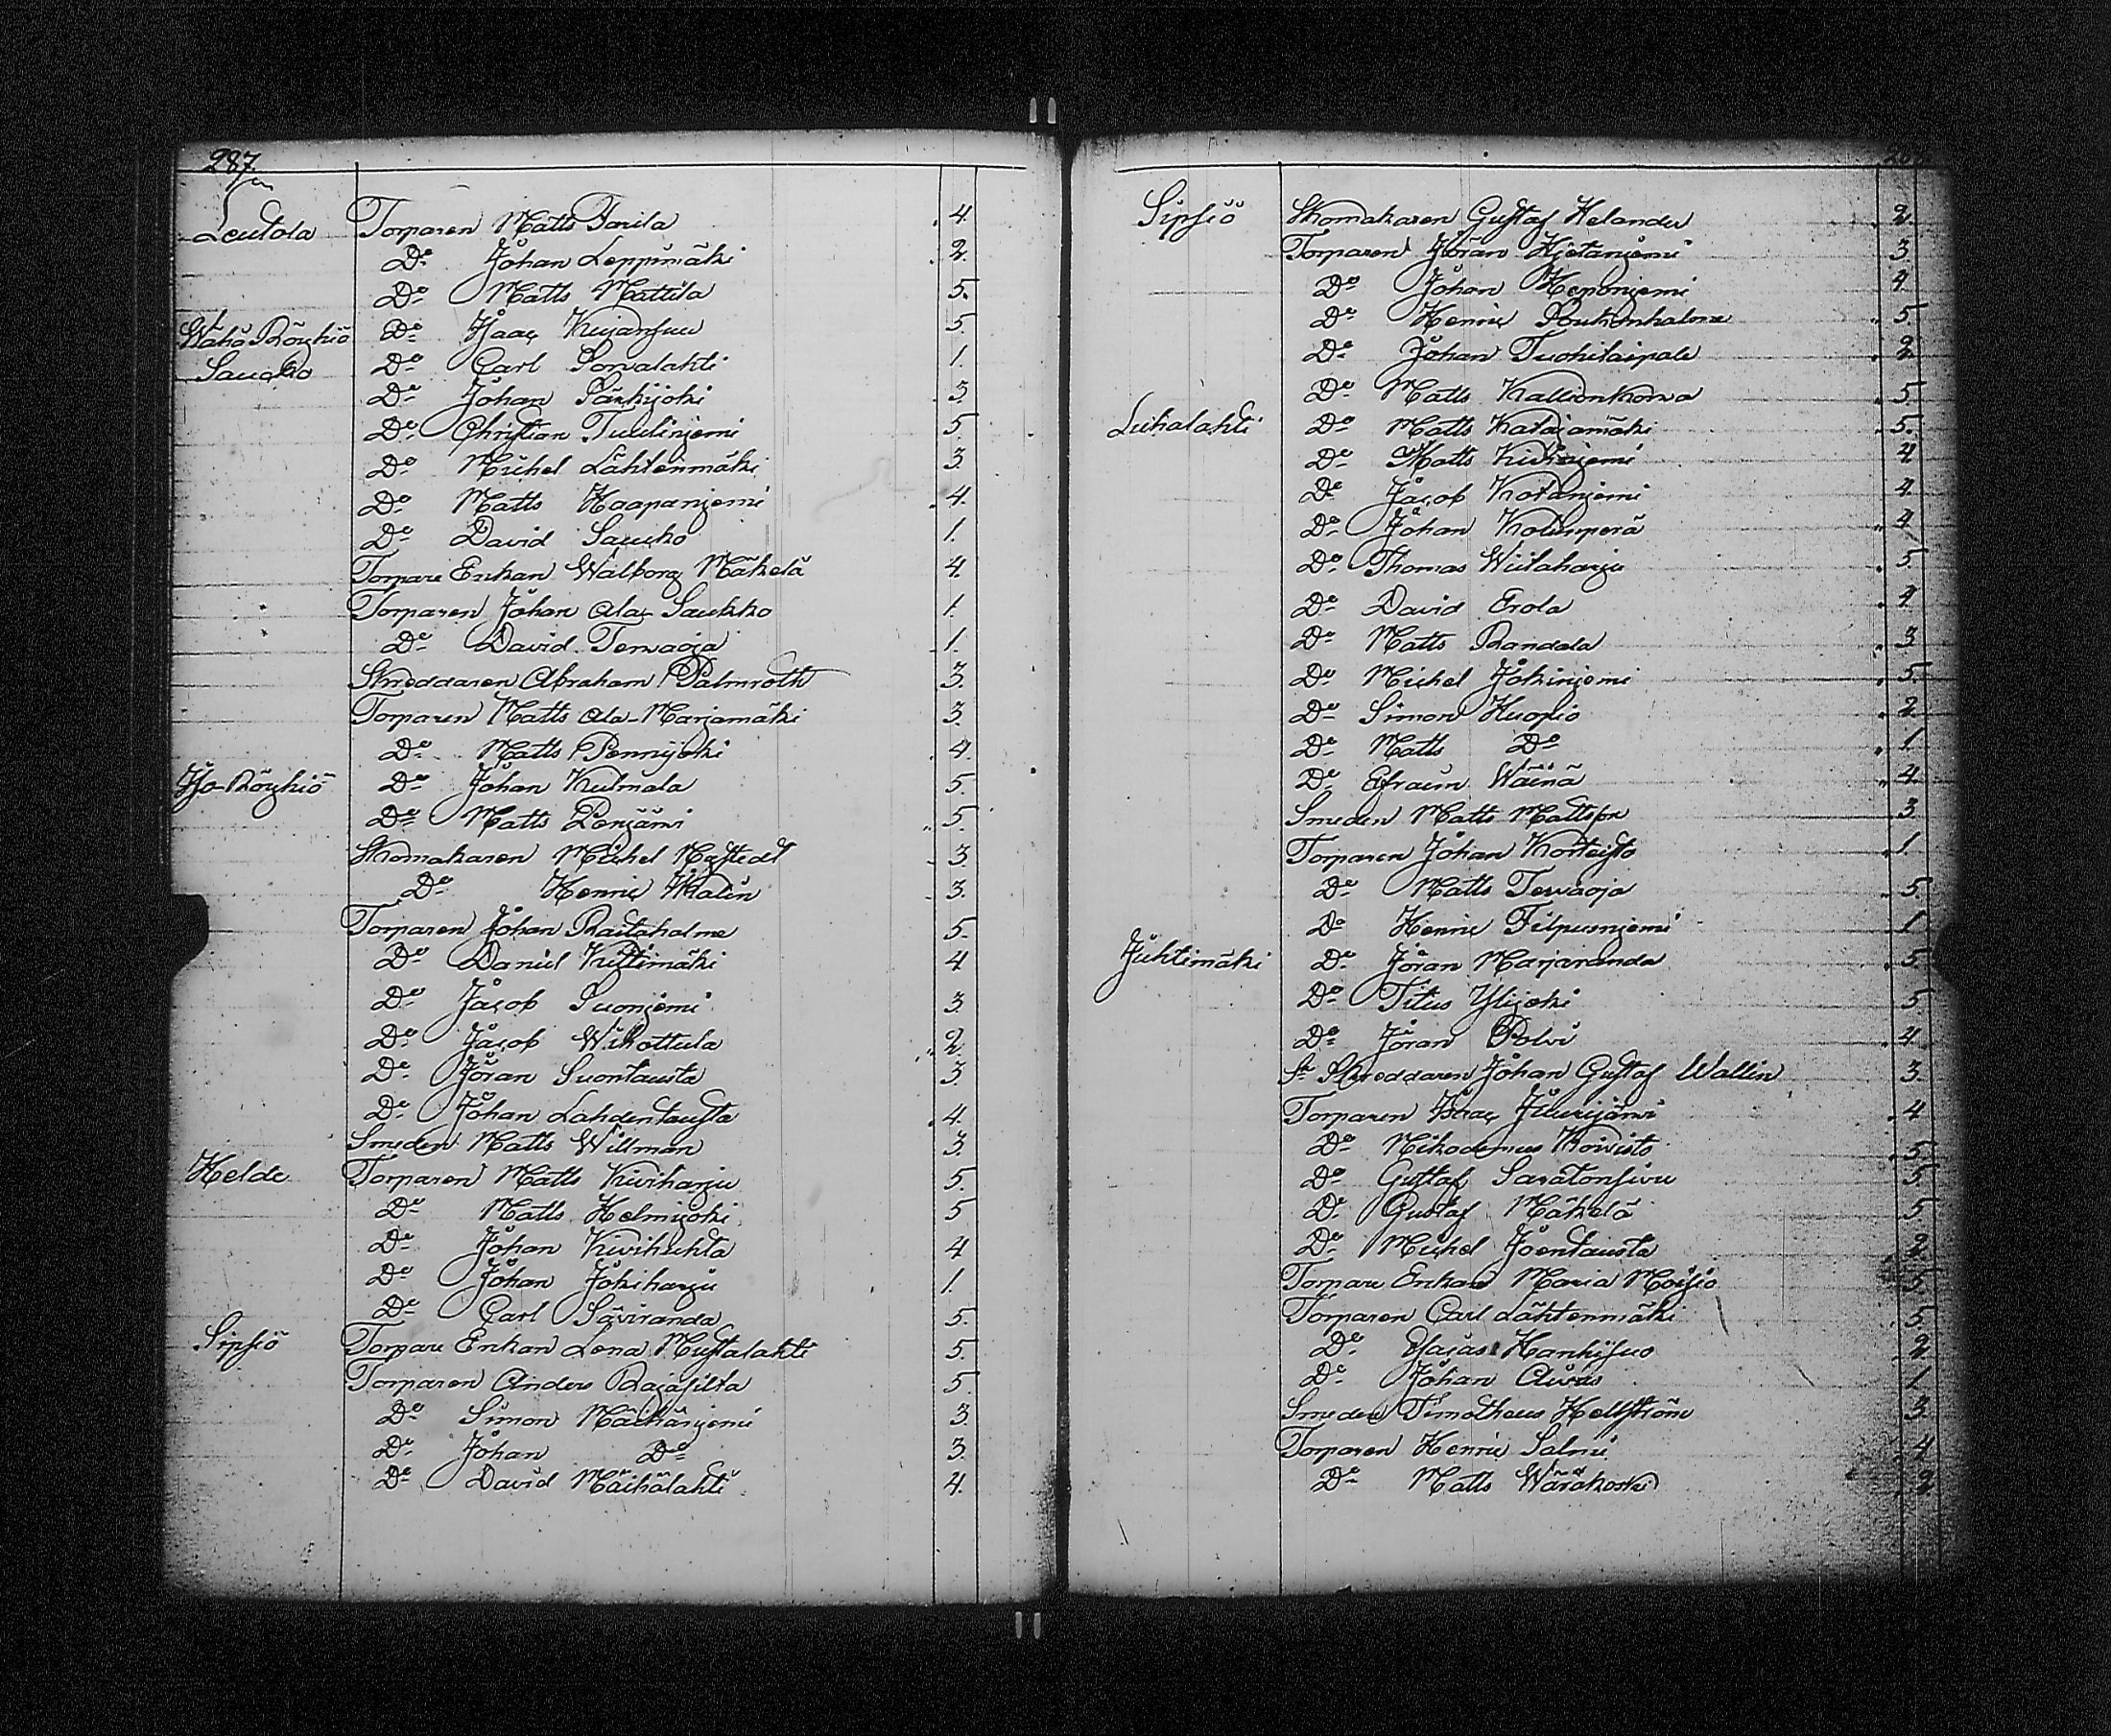 287.
Leutola Torparen Matts Tarila 4.
Do Johan Leppimäki 2.
Do Matts Mattila 5.
Wähä Röyhiö Do Isaac Kujansuu 5
Saucko Do Carl Sorvalahti 1.
Do Johan Pärkijoki 3.
Do Christian Tuulinjemi 5.
Do Michel Lähtenmäki 3.
Do Matts Haapanjemi 4.
Do David Saucko 1.
Torpare Enkan Walborg Mäkelä 4.
Torparen Johan Ala Saukko 1.
Do David Tervaoja 1.
Skreddaren Abraham Palmroth 3.
Torparen Matts Ala-Marjamäki 3.
Do Matts Pennijoki 4.
Iso-Röyhiö Do Johan Kulmala 5
Do Matts Penjärvi 5.
Skomakaren Michel Nystedt 3.
Do Henric Malin 3.
Torparen Johan Rautahalme 5.
Do Daniel Kuttimäki 4
Do Jacob Suonjemi 3.
Do Jacob Wihottula 2.
Do Jöran Suontausta 3.
Do Johan Lahdentausta 4.
Smeden Matts Willman 3.
Helde Torparen Matts Kiviharju 5.
Do Matts Helmijoki 5
Do Johan Kivihuhta 4
Do Johan Jokiharju 1.
Do Carl Saviranda 5.
Sipsiö Torpare Enkan Lena Mustalahti 5.
Torparen Anders Rajasilta 5.
Do Simon Näihänjemi 3.
Do Johan Do 3.
Do David Mäihälahti 4.
Sipsiö Skomakaren Gustaf Helander 2
Torparen Jöran Hietanjemi 3.
Do Johan Heponjemi 4
Do Henric Poukonhalme 5.
Do Johan Tuohitaipale 2
Do Matts Kallionkorva 5.
Luhalahti Do Matts Katajamäki 5.
Do Matts Kivinjemi 4
Do Jacob Kotanjemi 4.
Do Johan Kolunperä 4
Do Thomas Wiitaharju 5
Do David Erola 4
Do Matts Randala 3
Do Michel Jokinjemi 5.
Do Simon Kuopio 2
Do Matts Do 1
Do Efraim Wäinä 4
Smeden Matts Mattsson 3
Torparen Johan Korteisto 1.
Do Matts Tervaoja 5
Do Henric Filpusnjemi 1
Juhtimäki Do Jöran Marjaranda 5.
Do Titus Ylijoki 5
Do Jöran Polvi 4
Sn Skreddaren Johan Gustaf Wallin 3.
Torparen Isaac Juurijärvi 4
Do Nikodemus Koivisto 5
Do Gustaf Savatonsivu 5
Do Gustaf Mäkelä 5
Do Michel Joentausta 2.
Torpare Enkan Maria Moisio 5
Torparen Carl Lähtenmäki 5.
Do Esaias Hanhisuo 2
Do Johan Aivas 1
Smeden Timotheus Hellström 3.
Torparen Henric Salmi 4
Do Matts Wäräkoski 2